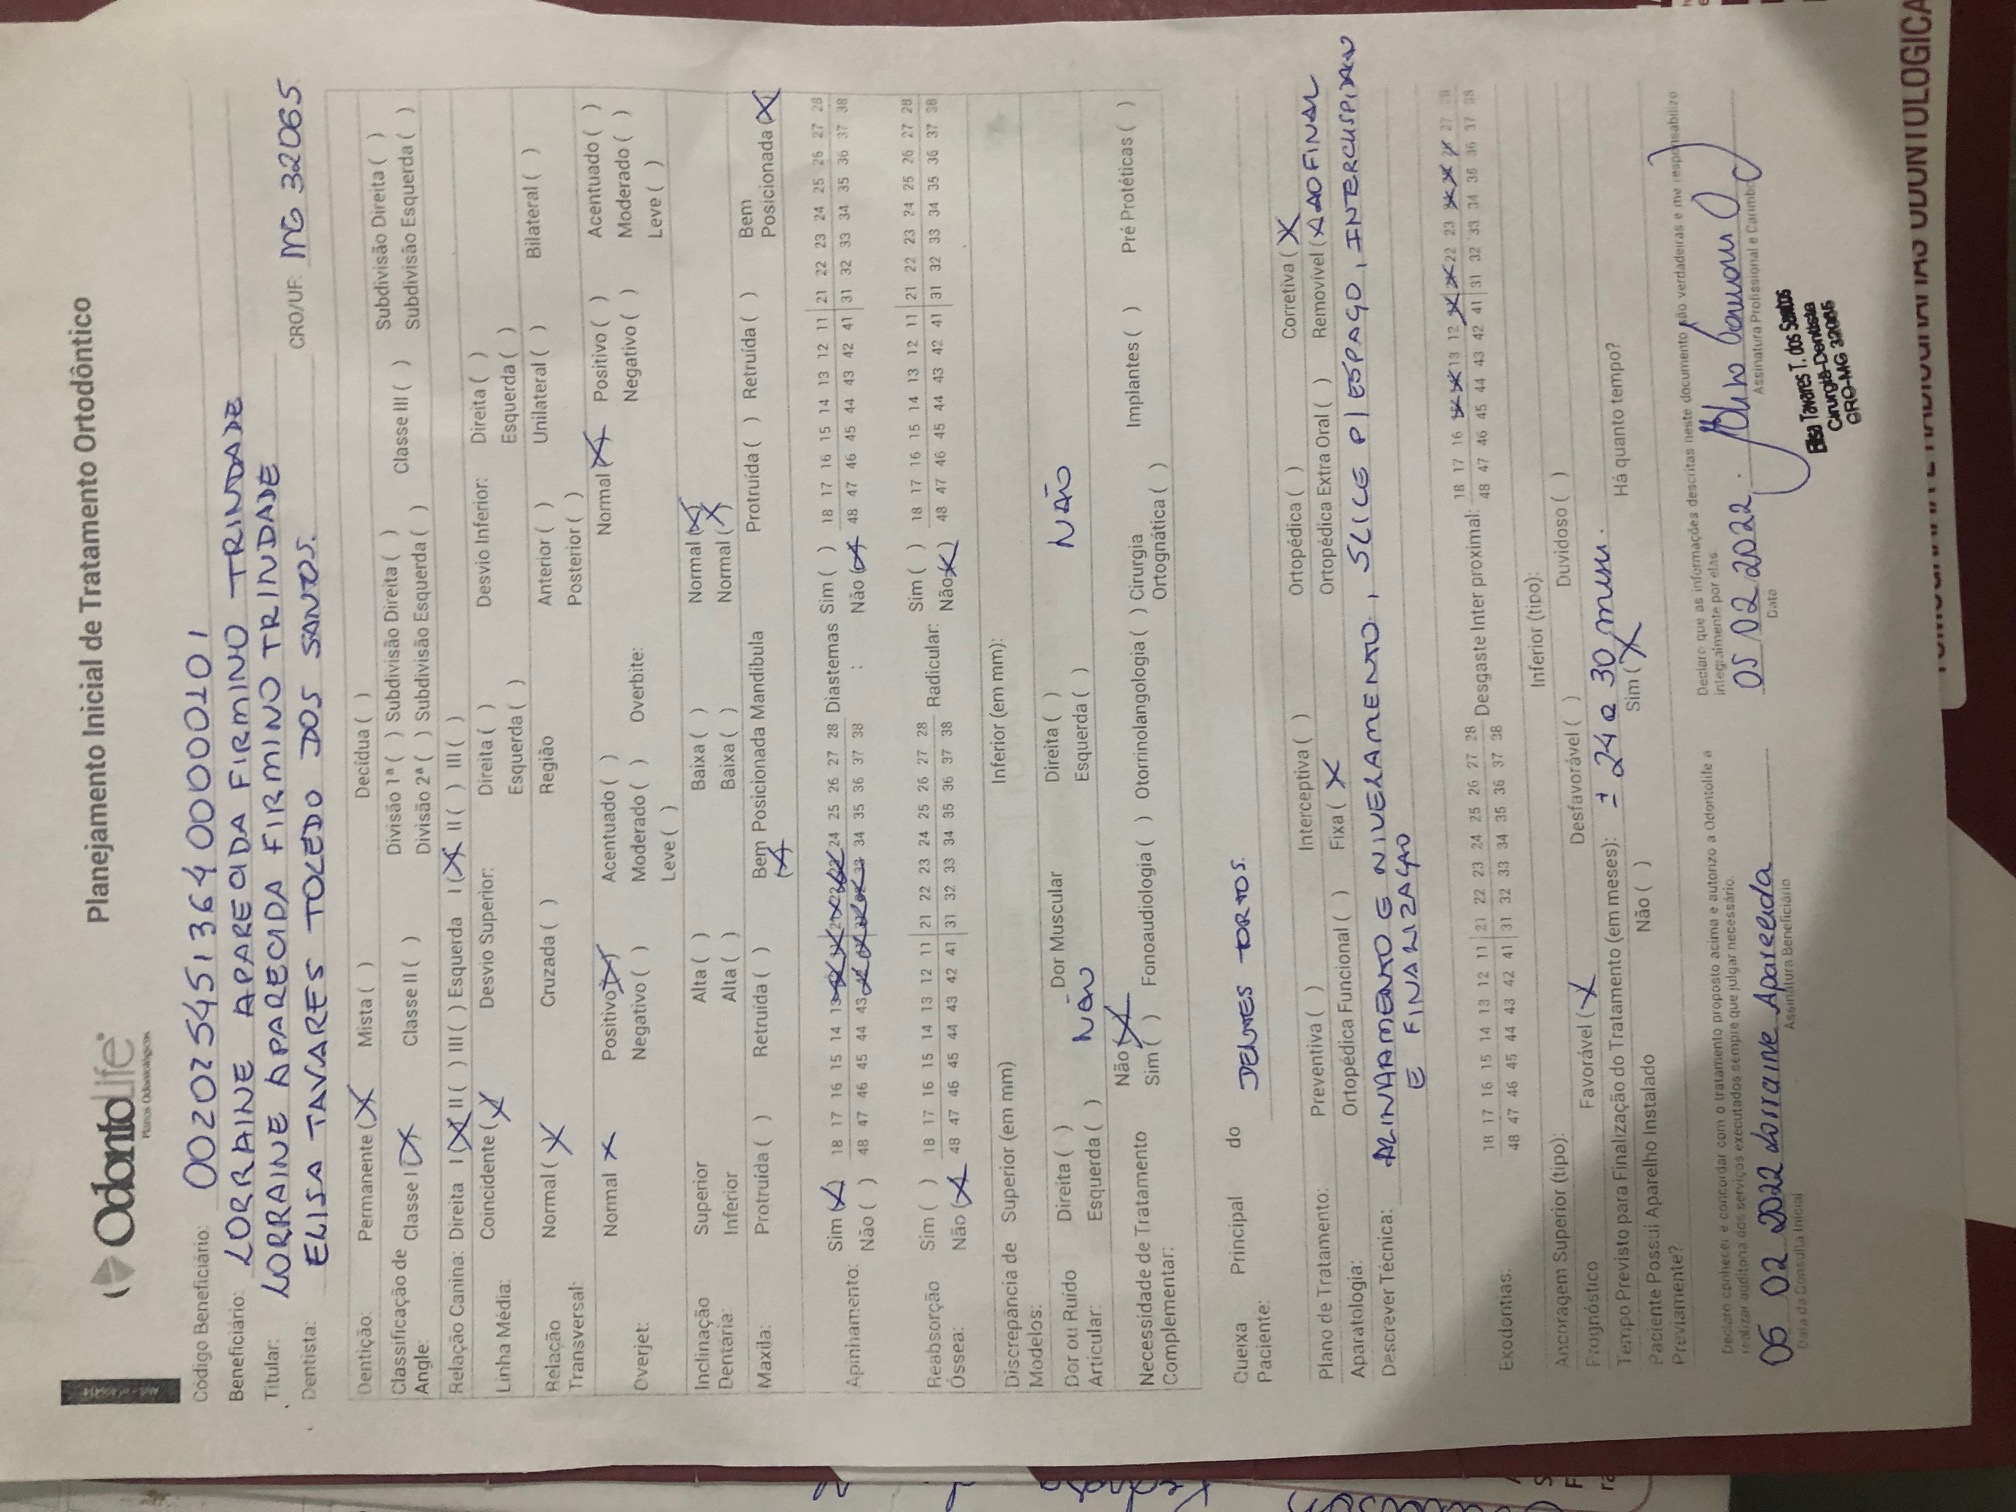 OdontoLife®
Planos Odontológicos
Planejamento Inicial de Tratamento Ortodôntico
Código Beneficiário: 00202545136400000101
Beneficiário: LORRAINE APARECIDA FIRMINO TRINDADE
Titular: LORRAINE APARECIDA FIRMINO TRINDADE
Dentista: ELISA TAVARES TOLEDO DOS SANTOS. CRO/UF: MG 32065
Dentição: Permanente (X) Mista ( ) Decídua ( )
Classificação de Angle: Classe I (X) Classe II ( ) Divisão 1ª ( ) Subdivisão Direita ( ) Classe III ( ) Subdivisão Direita ( )
Divisão 2ª ( ) Subdivisão Esquerda ( ) Subdivisão Esquerda ( )
Relação Canina: Direita I (X) II ( ) III ( ) Esquerda I (X) II ( ) III ( )
Linha Média: Coincidente (X) Desvio Superior: Direita ( ) Desvio Inferior: Direita ( )
Esquerda ( ) Esquerda ( )
Relação Transversal: Normal (X) Cruzada ( ) Região Anterior ( ) Unilateral ( ) Bilateral ( )
Posterior ( )
Overjet: Normal X Positivo X Acentuado ( ) Overbite: Normal X Positivo ( ) Acentuado ( )
Negativo ( ) Moderado ( ) Negativo ( ) Moderado ( )
Leve ( ) Leve ( )
Inclinação Dentaria: Superior Alta ( ) Baixa ( ) Normal (X)
Inferior Alta ( ) Baixa ( ) Normal (X)
Maxila: Protruída ( ) Retruída ( ) Bem Posicionada (X) Mandibula Protruída ( ) Retruída ( ) Bem Posicionada (X)
Apinhamento: Sim (X) 18 17 16 15 14 13 24 25 26 27 28 Diastemas : Sim ( ) 18 17 16 15 14 13 12 11 | 21 22 23 24 25 26 27 28
Não ( ) 48 47 46 45 44 43 33 34 35 36 37 38 Não (X) 48 47 46 45 44 43 42 41 | 31 32 33 34 35 36 37 38
Reabsorção Óssea: Sim ( ) 18 17 16 15 14 13 12 11 | 21 22 23 24 25 26 27 28 Radicular: Sim ( ) 18 17 16 15 14 13 12 11 | 21 22 23 24 25 26 27 28
Não (X) 48 47 46 45 44 43 42 41 | 31 32 33 34 35 36 37 38 Não (X) 48 47 46 45 44 43 42 41 | 31 32 33 34 35 36 37 38
Discrepância de Modelos: Superior (em mm) Inferior (em mm):
Dor ou Ruído Articular: Direita ( ) NÃO Dor Muscular Direita ( ) NÃO
Esquerda ( ) Esquerda ( )
Necessidade de Tratamento Complementar: Não X
Sim ( ) Fonoaudiologia ( ) Otorinolangologia ( ) Cirurgia Ortognática ( ) Implantes ( ) Pré Protéticas ( )
Queixa Principal do Paciente: DENTES TORTOS.
Plano de Tratamento: Preventiva ( ) Interceptiva ( ) Ortopédica ( ) Corretiva (X
Aparatologia: Ortopédica Funcional ( ) Fixa (X Ortopédica Extra Oral ( ) Removível (X AO FINAL
Descrever Técnica: ALINHAMENTO E NIVELAMENTO, SLICE P/ ESPAÇO, INTERCUSPIDAÇÃO
E FINALIZAÇÃO
Exodontias: 18 17 16 15 14 13 12 11 | 21 22 23 24 25 26 27 28 Desgaste Inter proximal: 18 17 16 13 12 22 23 27 28
48 47 46 45 44 43 42 41 | 31 32 33 34 35 36 37 38 48 47 46 45 44 43 42 41 | 31 32 33 34 35 36 37 38
Ancoragem Superior (tipo): Inferior (tipo):
Prognóstico Favorável (X Desfavorável ( ) Duvidoso ( )
Tempo Previsto para Finalização do Tratamento (em meses): ± 24 a 30 meses.
Paciente Possui Aparelho Instalado Previamente? Não ( ) Sim (X Há quanto tempo?
Declaro conhecer e concordar com o tratamento proposto acima e autorizo a Odontolife a
realizar auditoria dos serviços executados sempre que julgar necessário.
Declaro que as informações descritas neste documento são verdadeiras e me responsabilizo
integralmente por elas.
05 02 2022 Lorraine Aparecida
Data da Consulta Inicial Assinatura Beneficiário
05 02 2022.
Data Assinatura Profissional e Carimbo
Elisa Tavares T. dos Santos
Cirurgiã-Dentista
CRO-MG 32065